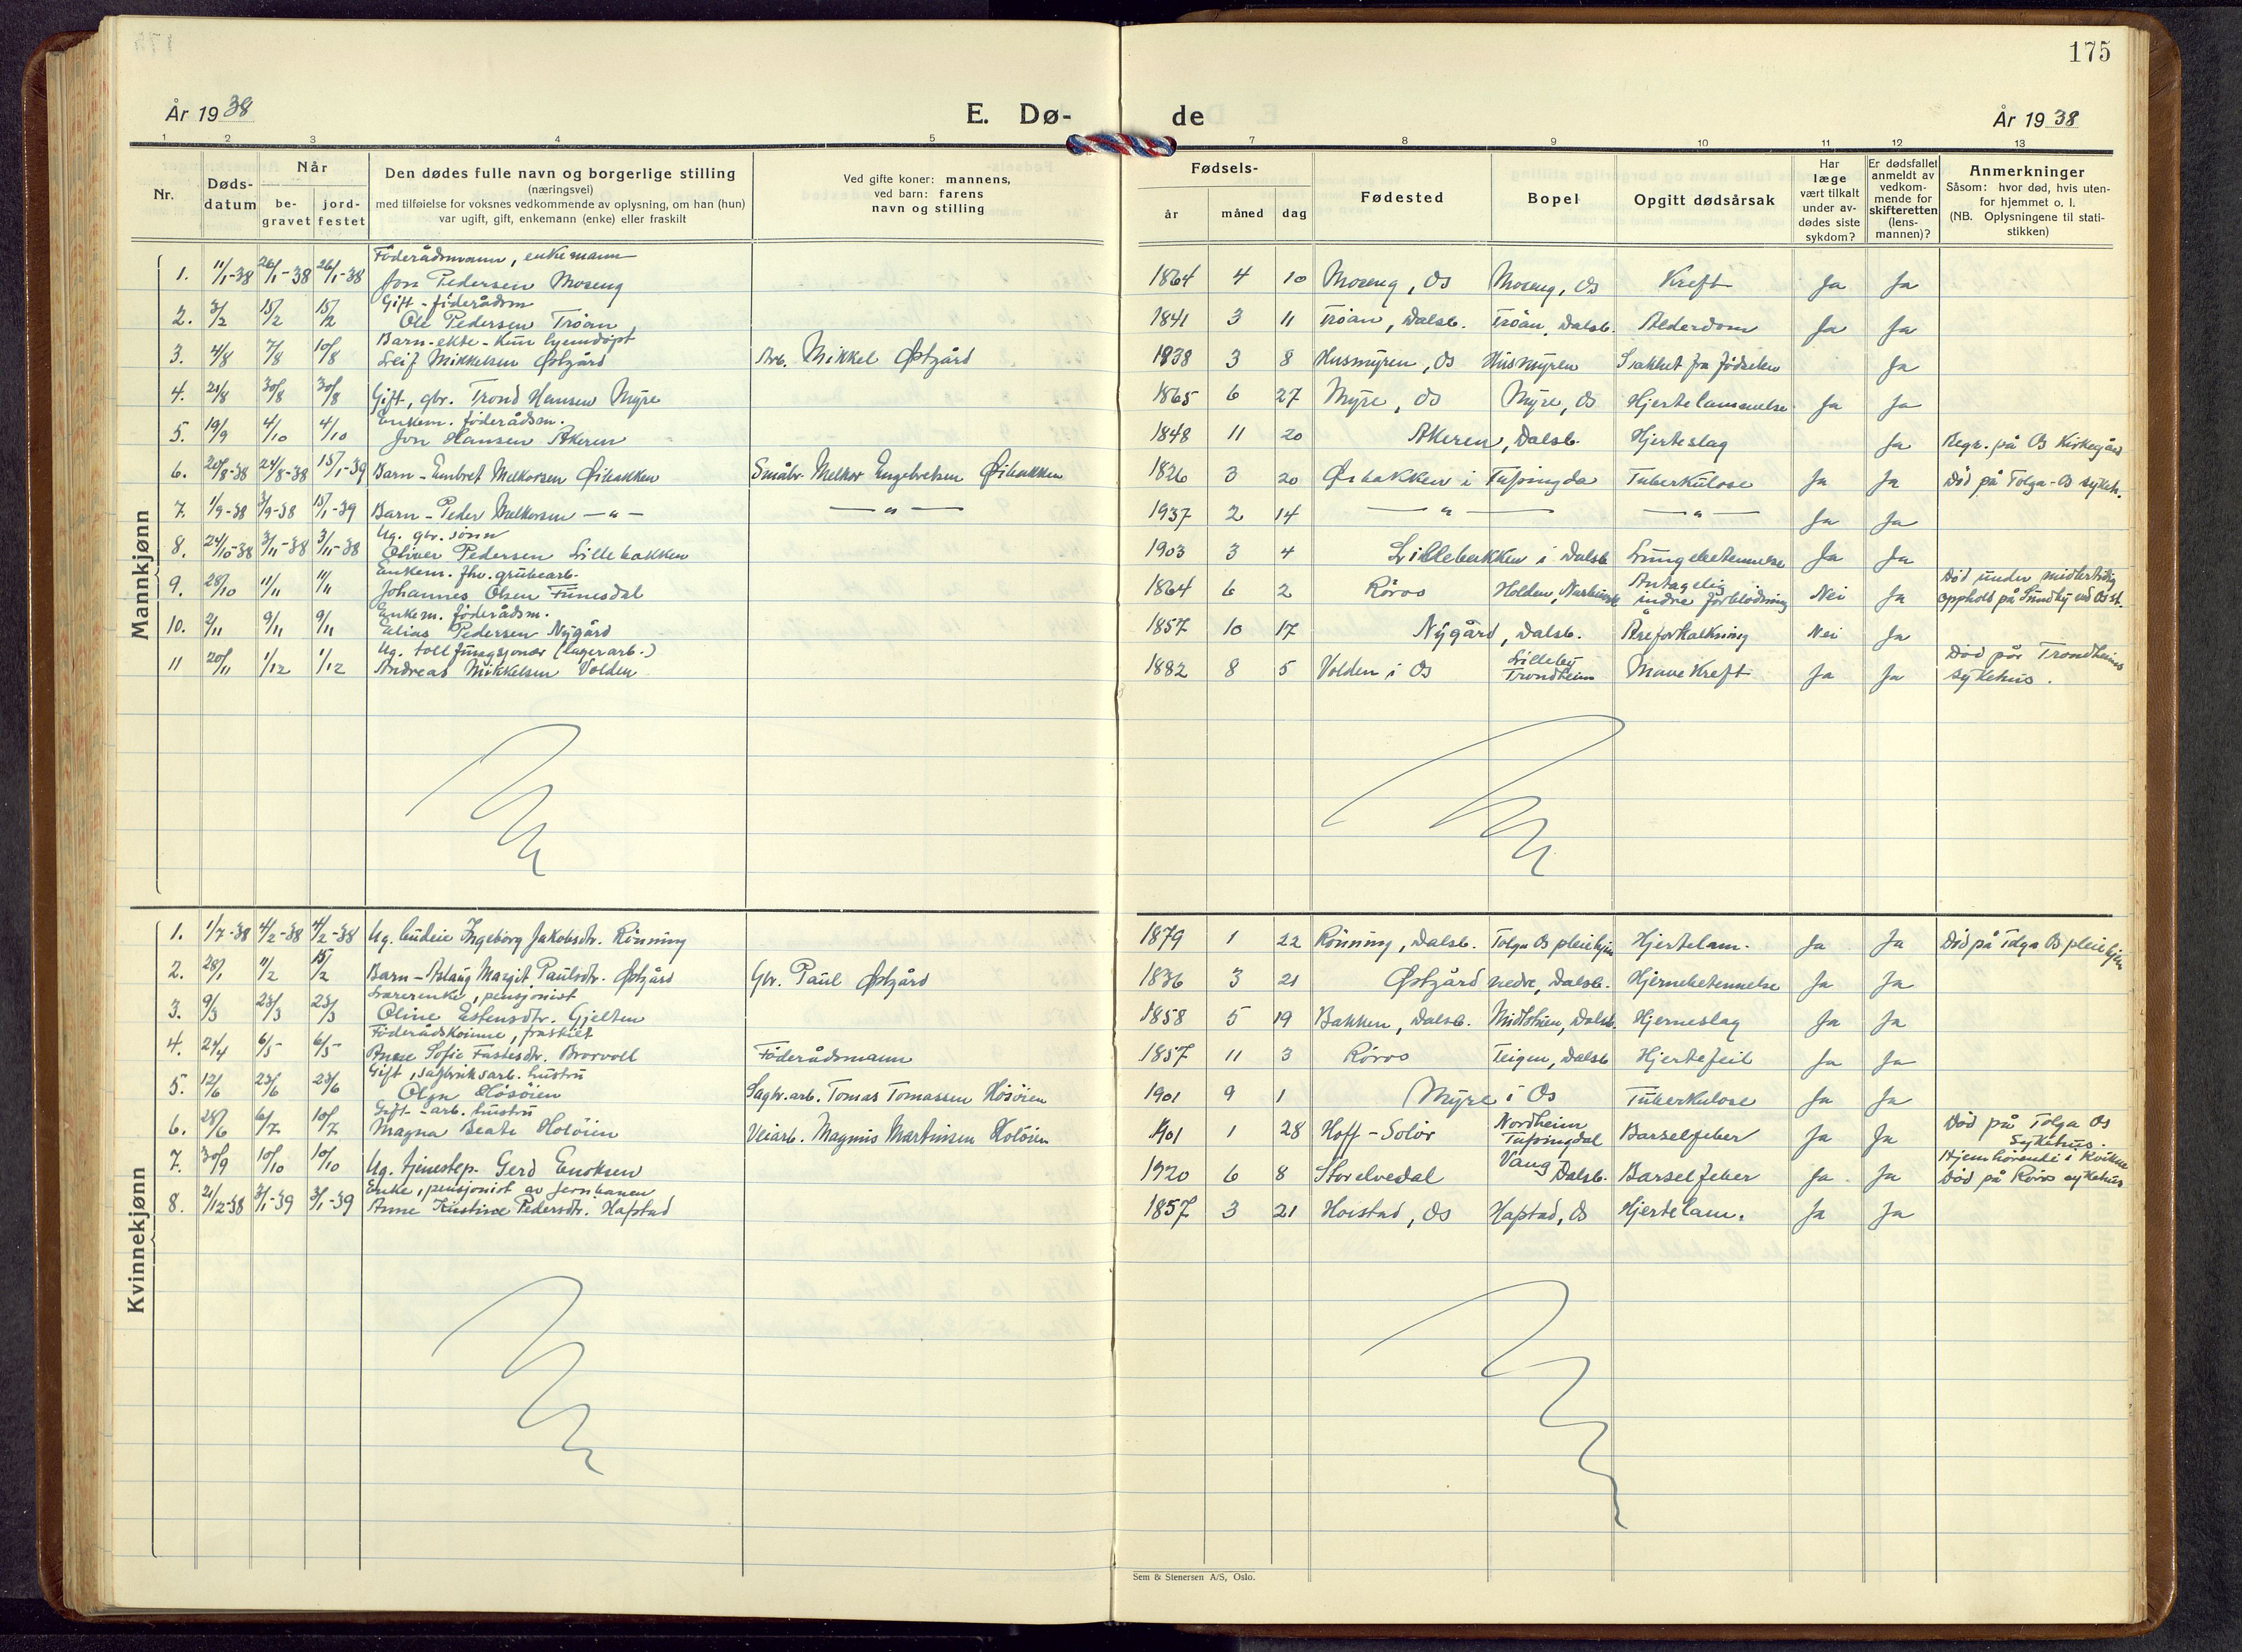 175
År 1938
E. Dø-
de
År 1938
1 2 3 4 5 7 8 9 10 11 12 13
Nr.
Døds-
datum
Når
be-
gravet
jord-
festet
Den dødes fulle navn og borgerlige stilling
(næringsvei)
med tilføielse for voksnes vedkommende av oplysning, om han (hun)
var ugift, gift, enkemann (enke) eller fraskilt
Ved gifte koner: mannens,
ved barn: farens
navn og stilling
Fødsels-
år måned dag
Fødested
Bopel
Opgitt dødsårsak
Har
læge
vært tilkalt
under av-
dødes siste
sykdom?
Er dødsfallet
anmeldt av
vedkom-
mende for
skifteretten
(lens-
mannen)?
Anmerkninger
Såsom: hvor død, hvis uten-
for hjemmet o. l.
(NB. Oplysningene til stati-
stikken)
Mannkjønn
Föderådsmann, enkemann
1. 11/1-38 26/1-38 26/1-38 Jon Pedersen Moseng 1864 4 10 Moseng, Os Moseng, Os Kreft Ja Ja
Gift - föderådsm
2. 3/2 15/2 15/2 Ole Pedersen Tröan 1841 3 11 Tröan, Dalsb. Tröan, Dalsb. Alderdom Ja Ja
Barn - ekte - Kun hjemdöpt
3. 4/8 7/8 10/8 Leif Mikkelsen Østgård Arb. Mikkel Østgård 1938 3 8 Husmyren, Os Husmyren Svakhet fra födselen Ja
4. 21/8 30/8 30/8 Gift, gbr. Trond Hansen Myre 1865 6 27 Myre, Os Myre, Os Hjertelammelse Ja Ja
Enkem. föderådsm.
5. 19/9 4/10 4/10 Jon Hansen Akeren 1848 11 20 Akeren, Dalsb. Hjerteslag Ja Begr. på Os Kirkegård
6. 20/8-38 24/8-38 15/1-39 Barn - Embret Melkorsen Øibakken Småbr. Melkor Engebretsen Øibakken 1926 3 20 Øibakken i Tufsingda Tuberkulose Ja Ja Död på Tolga-Os sykeh.
7. 1/9-38 3/9-38 15/1-39 Barn - Peder Melkorsen — " — — " — 1937 2 14 — " — — " — Ja Ja
Ug. gbr. sönn
8. 24/10-38 3/11-38 3/11-38 Oliver Pedersen Lillebakken 1903 3 4 Lillebakken i Dalsb Lungebetennelse Ja Ja
Enkem. fhv. grubearb.
9. 28/10 11/11 11/11 Johannes Olsen Funesdal 1864 6 2 Röros Holden, Antagelig indre forblödning Nei Ja Död under midlertidig
opphold på Sundby ved Os st.
Enkem. föderådsm.
10. 2/11 9/11 9/11 Elias Pedersen Nygård 1857 10 17 Nygård, Dalsb. Åreforkalkning Nei Ja
Ug. tollfungsjonær (lagerarb.)
11 20/11 1/12 1/12 Andreas Mikkelsen Volden 1882 8 5 Volden i Os Lilleby Trondheim Mavekreft Ja Ja Död på Trondheims
sykehus.
Kvinnekjønn
1. 1/7-38 4/2-38 4/2-38 Ug. budeie Ingeborg Jakobsdtr. Rönning 1879 1 22 Rönning, Dalsb. Tolga Os pleiehjm Hjertelam. Ja Ja Död på Tolga Os pleiehjem
2. 28/1 11/2 15/2 Barn - Aslaug Margit Paulsdtr. Østgård Gbr. Paul Østgård 1936 3 21 Østgård nedre, Dalsb. Hjernebetennelse Ja Ja
Lærerenke, pensjonist
3. 9/3 23/3 23/3 Oline Estensdtr. Gjelten 1858 5 19 Bakken, Dalsb. Midtstuen, Dalsb. Hjerneslag Ja Ja
Föderådskonne, fraskilt
4. 24/4 6/5 6/5 Anne Sofie Fastesdtr. Brorvoll Föderådsmann 1857 11 3 Röros Teigen, Dalsb Hjertefeil Ja Ja
Gift, sagbruksarb. hustru
5. 12/6 23/6 23/6 Olga Hösöien Sagbr.arb. Tomas Tomassen Hösöien 1901 9 1 Myre i Os Tuberkulose Ja Ja
Gift - arb. hustru
6. 28/6 6/7 10/7 Magna Beate Holöien Veiarb. Magnus Martinsen Holöien 1901 1 28 Hoff - Solör Nordheim Tufsingdal Barselfeber Ja Ja Död på Tolga Os
Sykehus.
7. 30/9 10/10 10/10 Ug. tjenestep. Gerd Enoksen 1920 6 8 Storelvedal Vang Dalsb. Barselfeber Ja Ja Hjemhörende i Kvikne
Död på Röros sykehus
Enke, pensjonist av jernbanen
8. 21/12-38 3/1-39 3/1-39 Anne Kirstine Pedersdtr. Hafstad 1857 3 21 Hoistad, Os Hafstad, Os Hjertelam. Ja Ja
Sem & Stenersen A/S, Oslo.